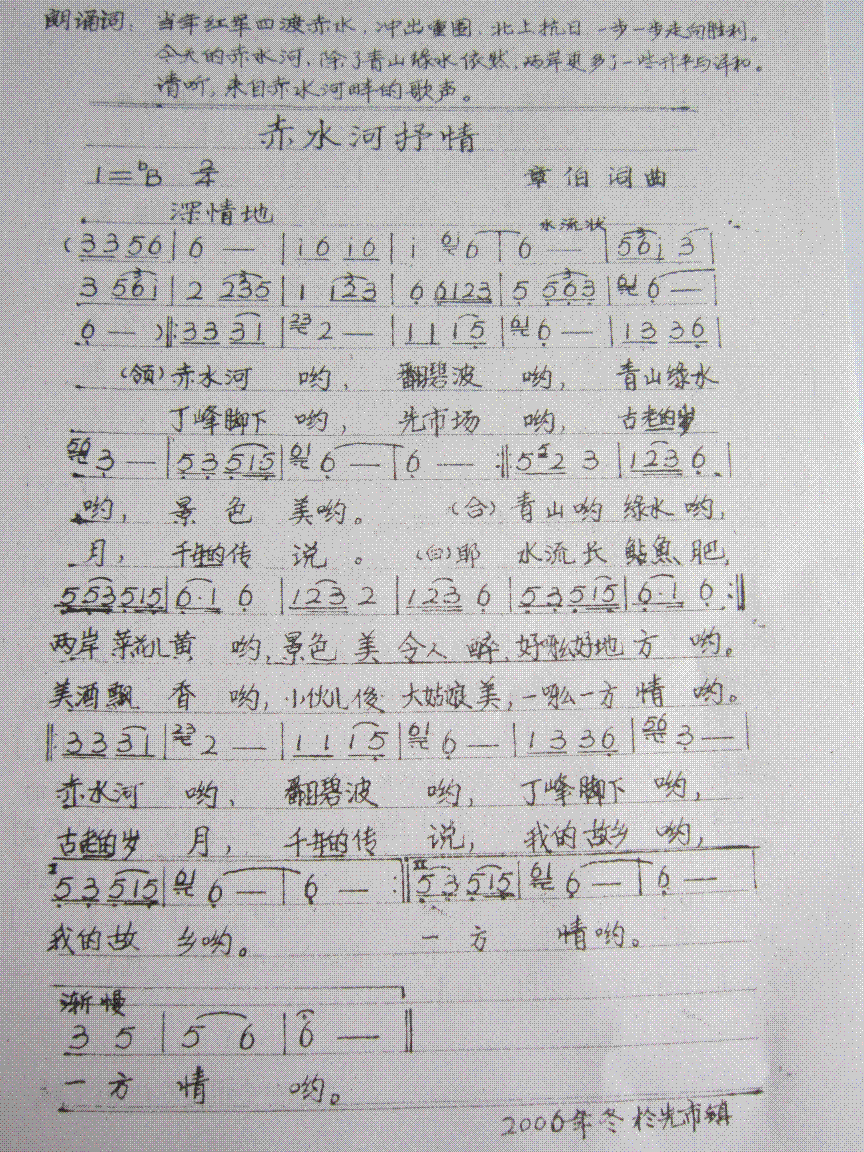 朗诵词：当年红军四渡赤水，冲出重围，北上抗日一步一步走向胜利。
今天的赤水河，除了青山绿水依然，两岸更多了一些升平与详和。
请听，来自赤水河畔的歌声。
赤水河抒情
1=ᵇB 2/4 章伯词曲
深情地
水流状
(3 3 5 6 | 6 — | i 6 i 6 | i 6i 6 | 6 — | 5 6 i 3 |
3 5 6 i | 2 2 3 5 | 1 1 2 3 | 6 6 1 2 3 | 5 5 6 3 | 61 6 — |
6 — ) ‖: 3 3 3 1 | 23 2 — | 1 1 1 5 | 61 6 — | 1 3 3 6 |
(领)赤水河 哟， 翻碧波 哟， 青山绿水
丁峰脚下 哟， 先市场 哟， 古老的岁
56 3 — | 5 3 5 1 5 | 61 6 — | 6 — :‖ 5 5 2 3 | 1 2 3 6 |
哟， 景 色 美哟。 (合)青山哟 绿水哟，
月， 千年的传 说。 (白)耶 水流长 鲇鱼肥，
5 5 3 5 1 5 | 6·1 6 | 1 2 3 2 | 1 2 3 6 | 5 3 5 1 5 | 6·1 6 :‖
两岸菜花儿黄 哟，景色 美 令人 醉，好哟么好地 方 哟。
美酒飘 香 哟，小伙儿俊 大姑娘美，一呀么一方 情 哟。
‖: 3 3 3 1 | 23 2 — | 1 1 1 5 | 61 6 — | 1 3 3 6 | 56 3 — |
赤水河 哟， 翻碧波 哟， 丁峰脚下 哟，
古老的岁 月， 千年的传 说， 我的故乡 哟，
I II
5 3 5 1 5 | 61 6 — | 6 — :‖ 5 3 5 1 5 | 61 6 — | 6 — |
我的故 乡哟。 一 方 情哟。
渐慢
3 5 | 5 6 | 6 — ‖
一 方 情 哟。
2006年冬 於先市镇